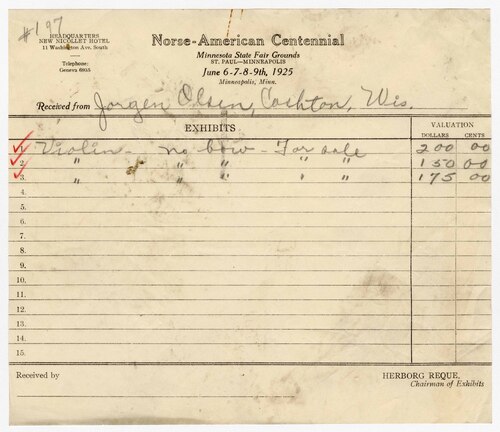 #197
HEADQUARTERS
NEW NICOLLET HOTEL
11 Washington Ave, South
Telephone:
Geneva 6805
Norse-American Centennial
Minnesota State Fair Grounds
ST. PAUL—MINNEAPOLIS
June 6-7-8-9th, 1925
Minneapolis, Minn.
Received from Jorgen Olsen, Cashton, Wis.
EXHIBITS VALUATION
DOLLARS CENTS
1. Violin - no bow - For sale 200 00
2. " " " " " 150 00
3. " " " " " 175 00
4.
5.
6.
7.
8.
9.
10.
11.
12.
13.
14.
15.
Received by HERBORG REQUE,
Chairman of Exhibits